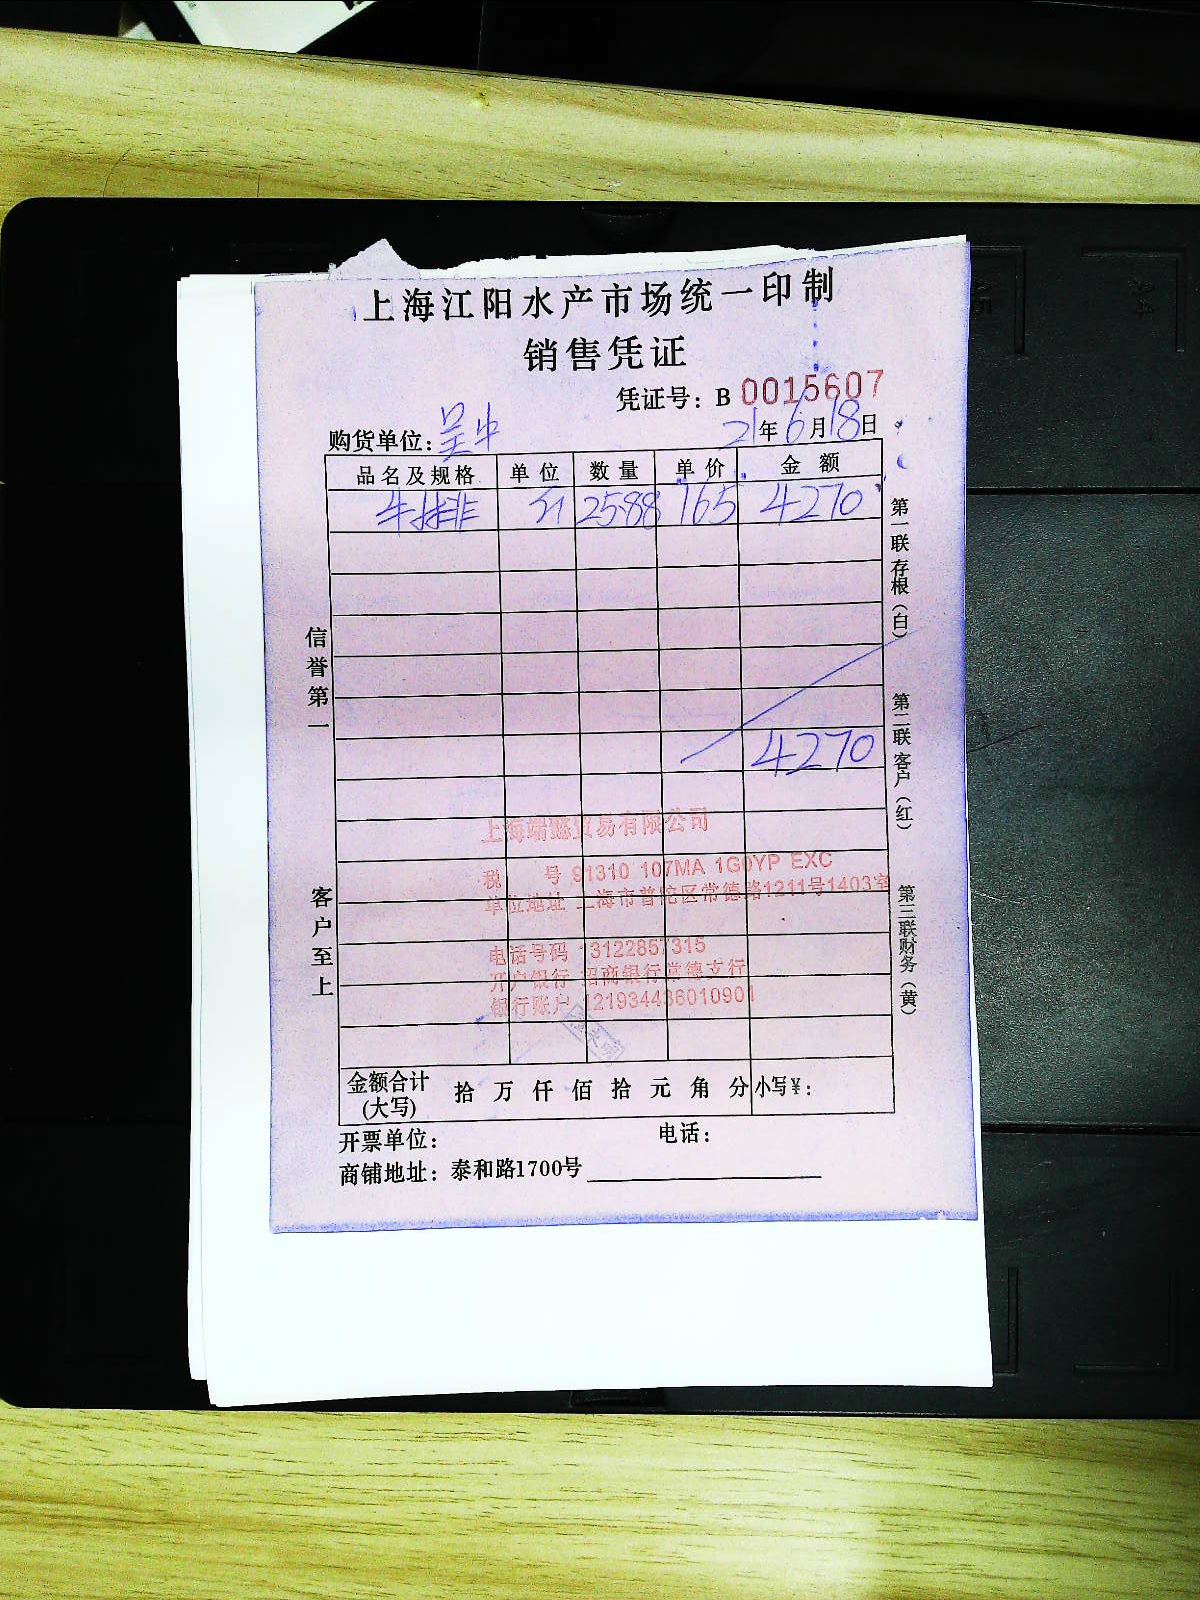 上海江阳水产市场统一印制
销售凭证
凭证号：B 0015607
购货单位：吴中 21年6月18日
品名及规格 单位 数量 单价 金额
牛排 斤 25.88 165 4270
4270
上海端懿贸易有限公司
税 号 91310 107MA 1G0YP EXC
单位地址 上海市普陀区常德路1211号1403室
电话号码 13122857315
开户银行 招商银行常德支行
银行账户 121934436010901
金额合计(大写) 拾 万 仟 佰 拾 元 角 分 小写¥：
开票单位： 电话：
商铺地址：泰和路1700号
信誉第一
客户至上
第一联存根（白）
第二联客户（红）
第三联财务（黄）